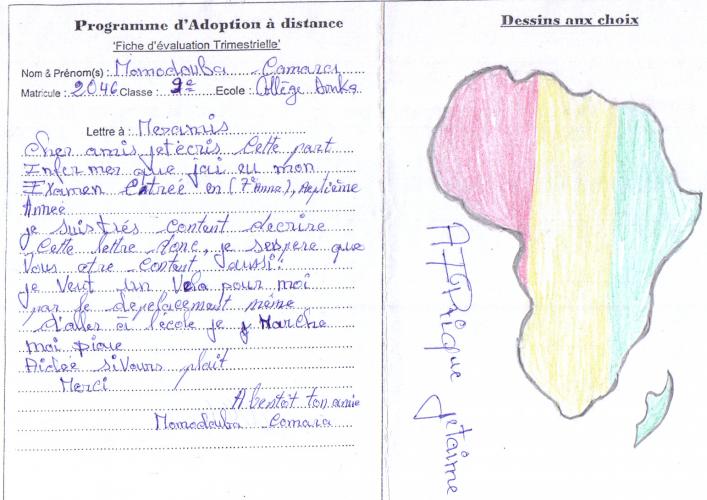 Programme d'Adoption à distance
'Fiche d'évaluation Trimestrielle'
Nom & Prénom(s) : Momodouba Camara
Matricule : 2046 Classe : 9e Ecole : Collège Donka
Lettre à : Mezamis
Cher amis jetécris Cette part
Infermer que jai eu mon
Examen Entrée en (7e Anne), Septième
Année
je suis trés Content decrire
Cette lettre donc, je sespere que
Vous etre Content aussi!
je Veut un Velo pour moi
par le deplacement même
d'aller à l'école je Marche
moi pique
Aidée si Vours plait
Merci
A bentot ton amie
Momodouba Camara
Dessins aux choix
AFRique jetaime